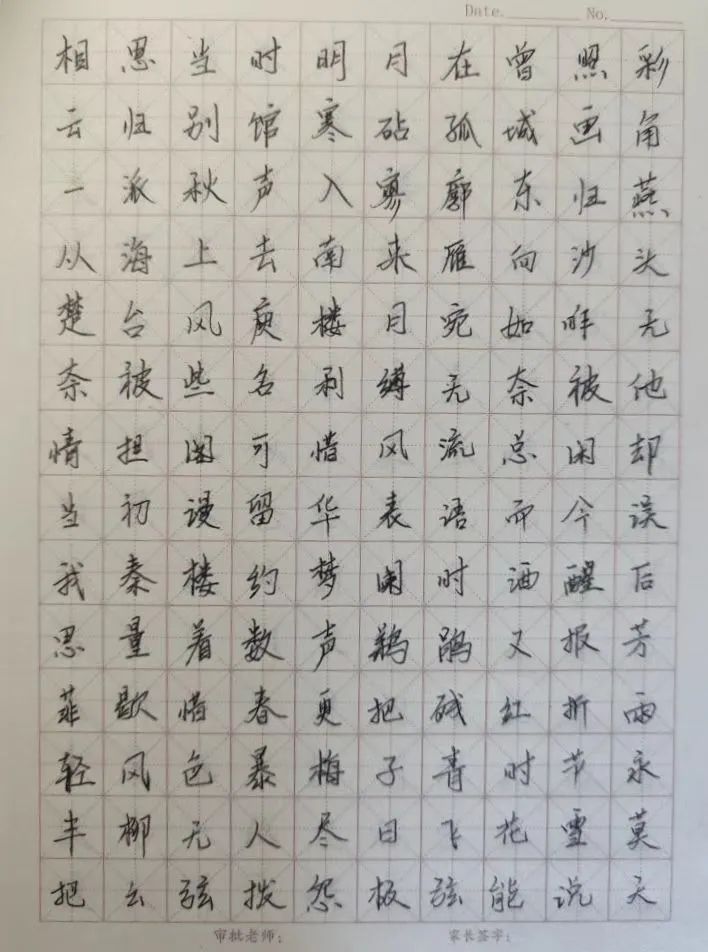 Date. No.
相思当时明月在曾照彩
云归别馆寒砧孤城画角
一派秋声入寥廓东归燕
从海上去南来雁向沙头
楚台风庾楼月宛如昨无
奈被些名利缚无奈被他
情担阁可惜风流总闲却
当初谩留华表语而今误
我秦楼约梦阑时酒醒后
思量着数声鹈鹕又报芳
菲歇惜春更把残红折雨
轻风色暴梅子青时节永
丰柳无人尽日飞花雪莫
把幺弦拨怨极弦能说天
审批老师: 家长签字: